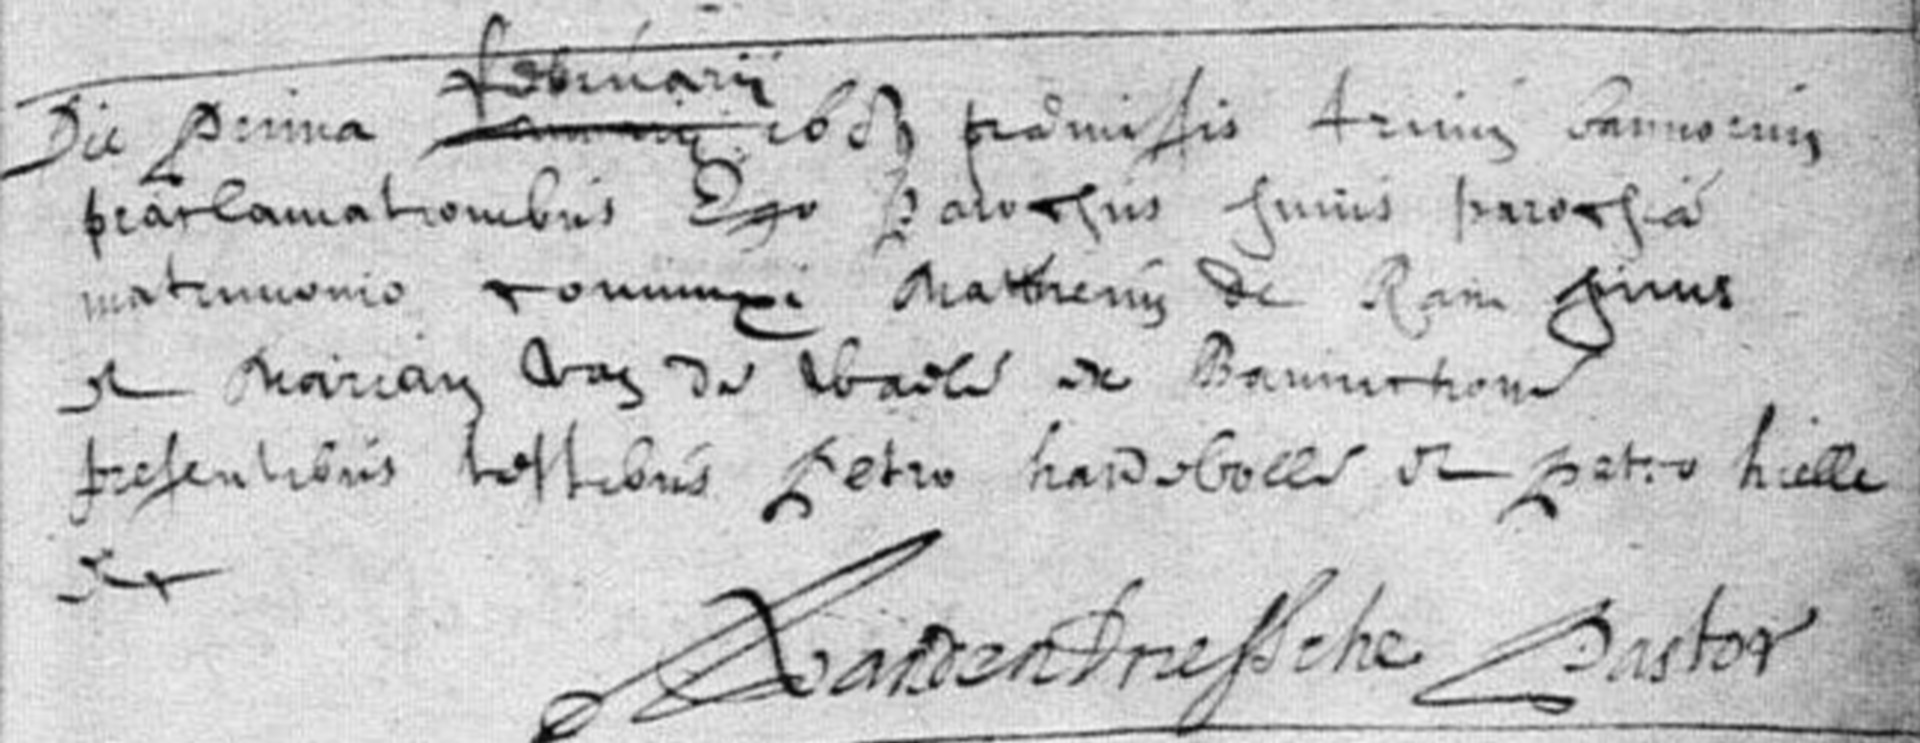 februarii
Die prima januarii 168 præmissis trinis bannorum
præclamationibus Ego Parochus huius parochiæ
matrimonio coniunxi Mattheum de Ram huius
et Mariam Van de Waele ex
presentibus testibus Petro hardebolle et Petro hielle
et
VandenDriessche Pastor